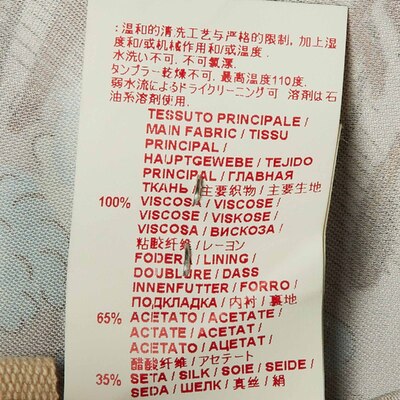 :温和的清先工艺与严格的限制, 加上湿
度和/或机械作用和/或温度.
水洗い不可. 不可氯漂.
タンブラー乾燥不可. 最高温度110度.
弱水流によるドライクリーニング可 溶剤は石
油系溶剤使用.
TESSUTO PRINCIPALE /
MAIN FABRIC / TISSU
PRINCIPAL /
HAUPTGEWEBE / TEJIDO
PRINCIPAL / ГЛАВНАЯ
ТКАНЬ / 主要织物 / 主要生地
100% VISCOSA / VISCOSE /
VISCOSE / VISKOSE /
VISCOSA / ВИСКОЗА /
粘胶纤维 / レーヨン
FODERA / LINING /
DOUBLURE / DASS
INNENFUTTER / FORRO /
ПОДКЛАДКА / 内衬 / 裏地
65% ACETATO / ACETATE /
ACTATE / ACETAT /
ACETATO / АЦЕТАТ /
醋酸纤维 / アセテート
35% SETA / SILK / SOIE / SEIDE /
SEDA / ШЕЛК / 真丝 / 絹